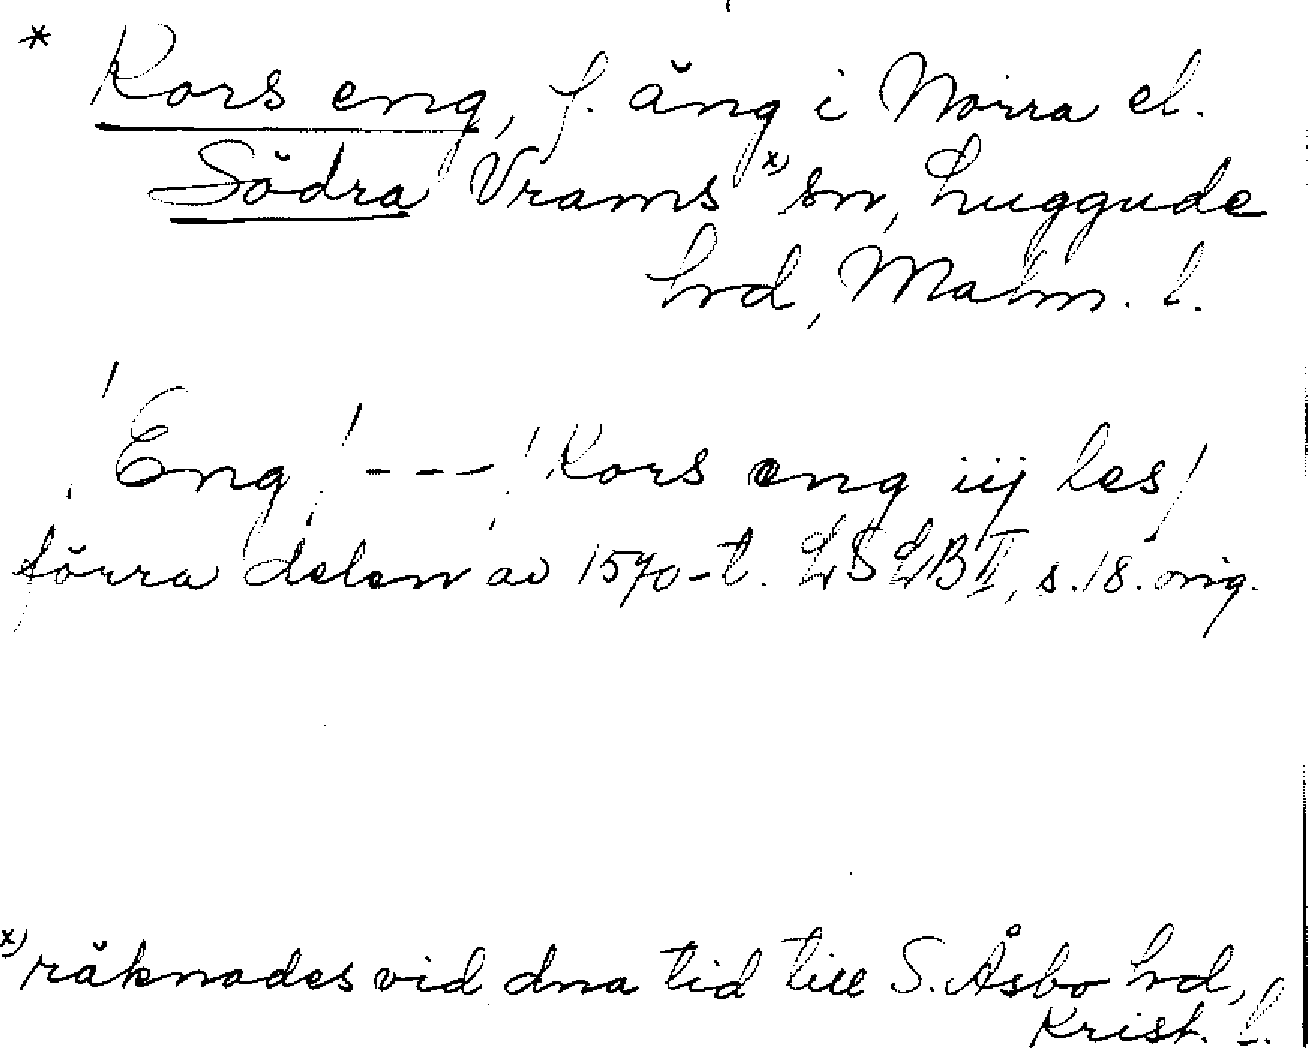 * Kors eng, f. äng i Norra el.
Södra Vrams x) sn, Luggude
hrd, Malm. l.
/Eng/ - - - /Kors eng iij les/
förra delen av 1570-t. LSLB II, s. 18. orig.
x) räknades vid dna tid till S. Åsbo hrd,
Krist. l.